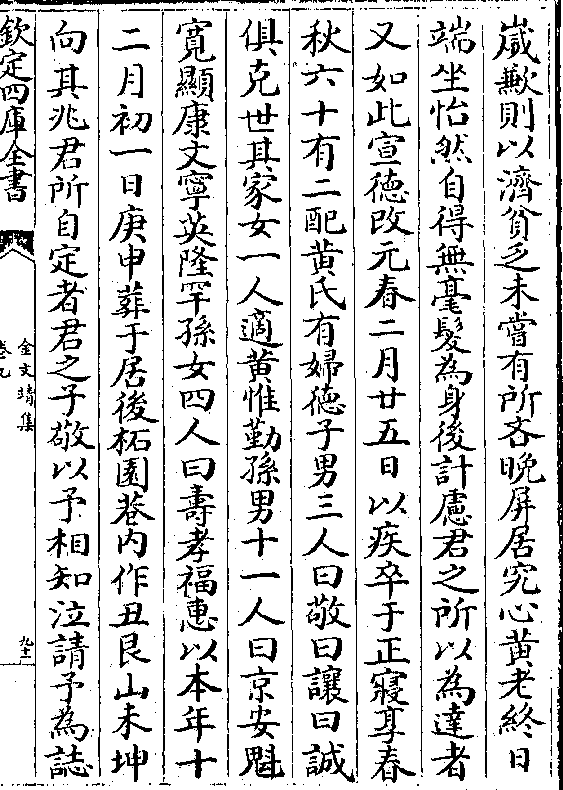 歲歉則以濟貧乏未嘗有所吝晚屏居究心黃老終日
端坐怡然自得無毫髮為身後計慮君之所以為達者
又如此宣徳改元春二月廿五日以疾卒于正寢享春
秋六十有二配黃氏有婦徳子男三人曰敬曰讓曰誠
俱克世其家女一人適黃惟勤孫男十一人曰京安魁
寛顯康文寧英隆罕孫女四人曰壽孝福惠以本年十
二月初一日庚申葬于居後柘園巷内作丑艮山未坤
向其兆君所自定者君之子敬以予相知泣請予為誌
欽定四庫全書
金文靖集
卷九